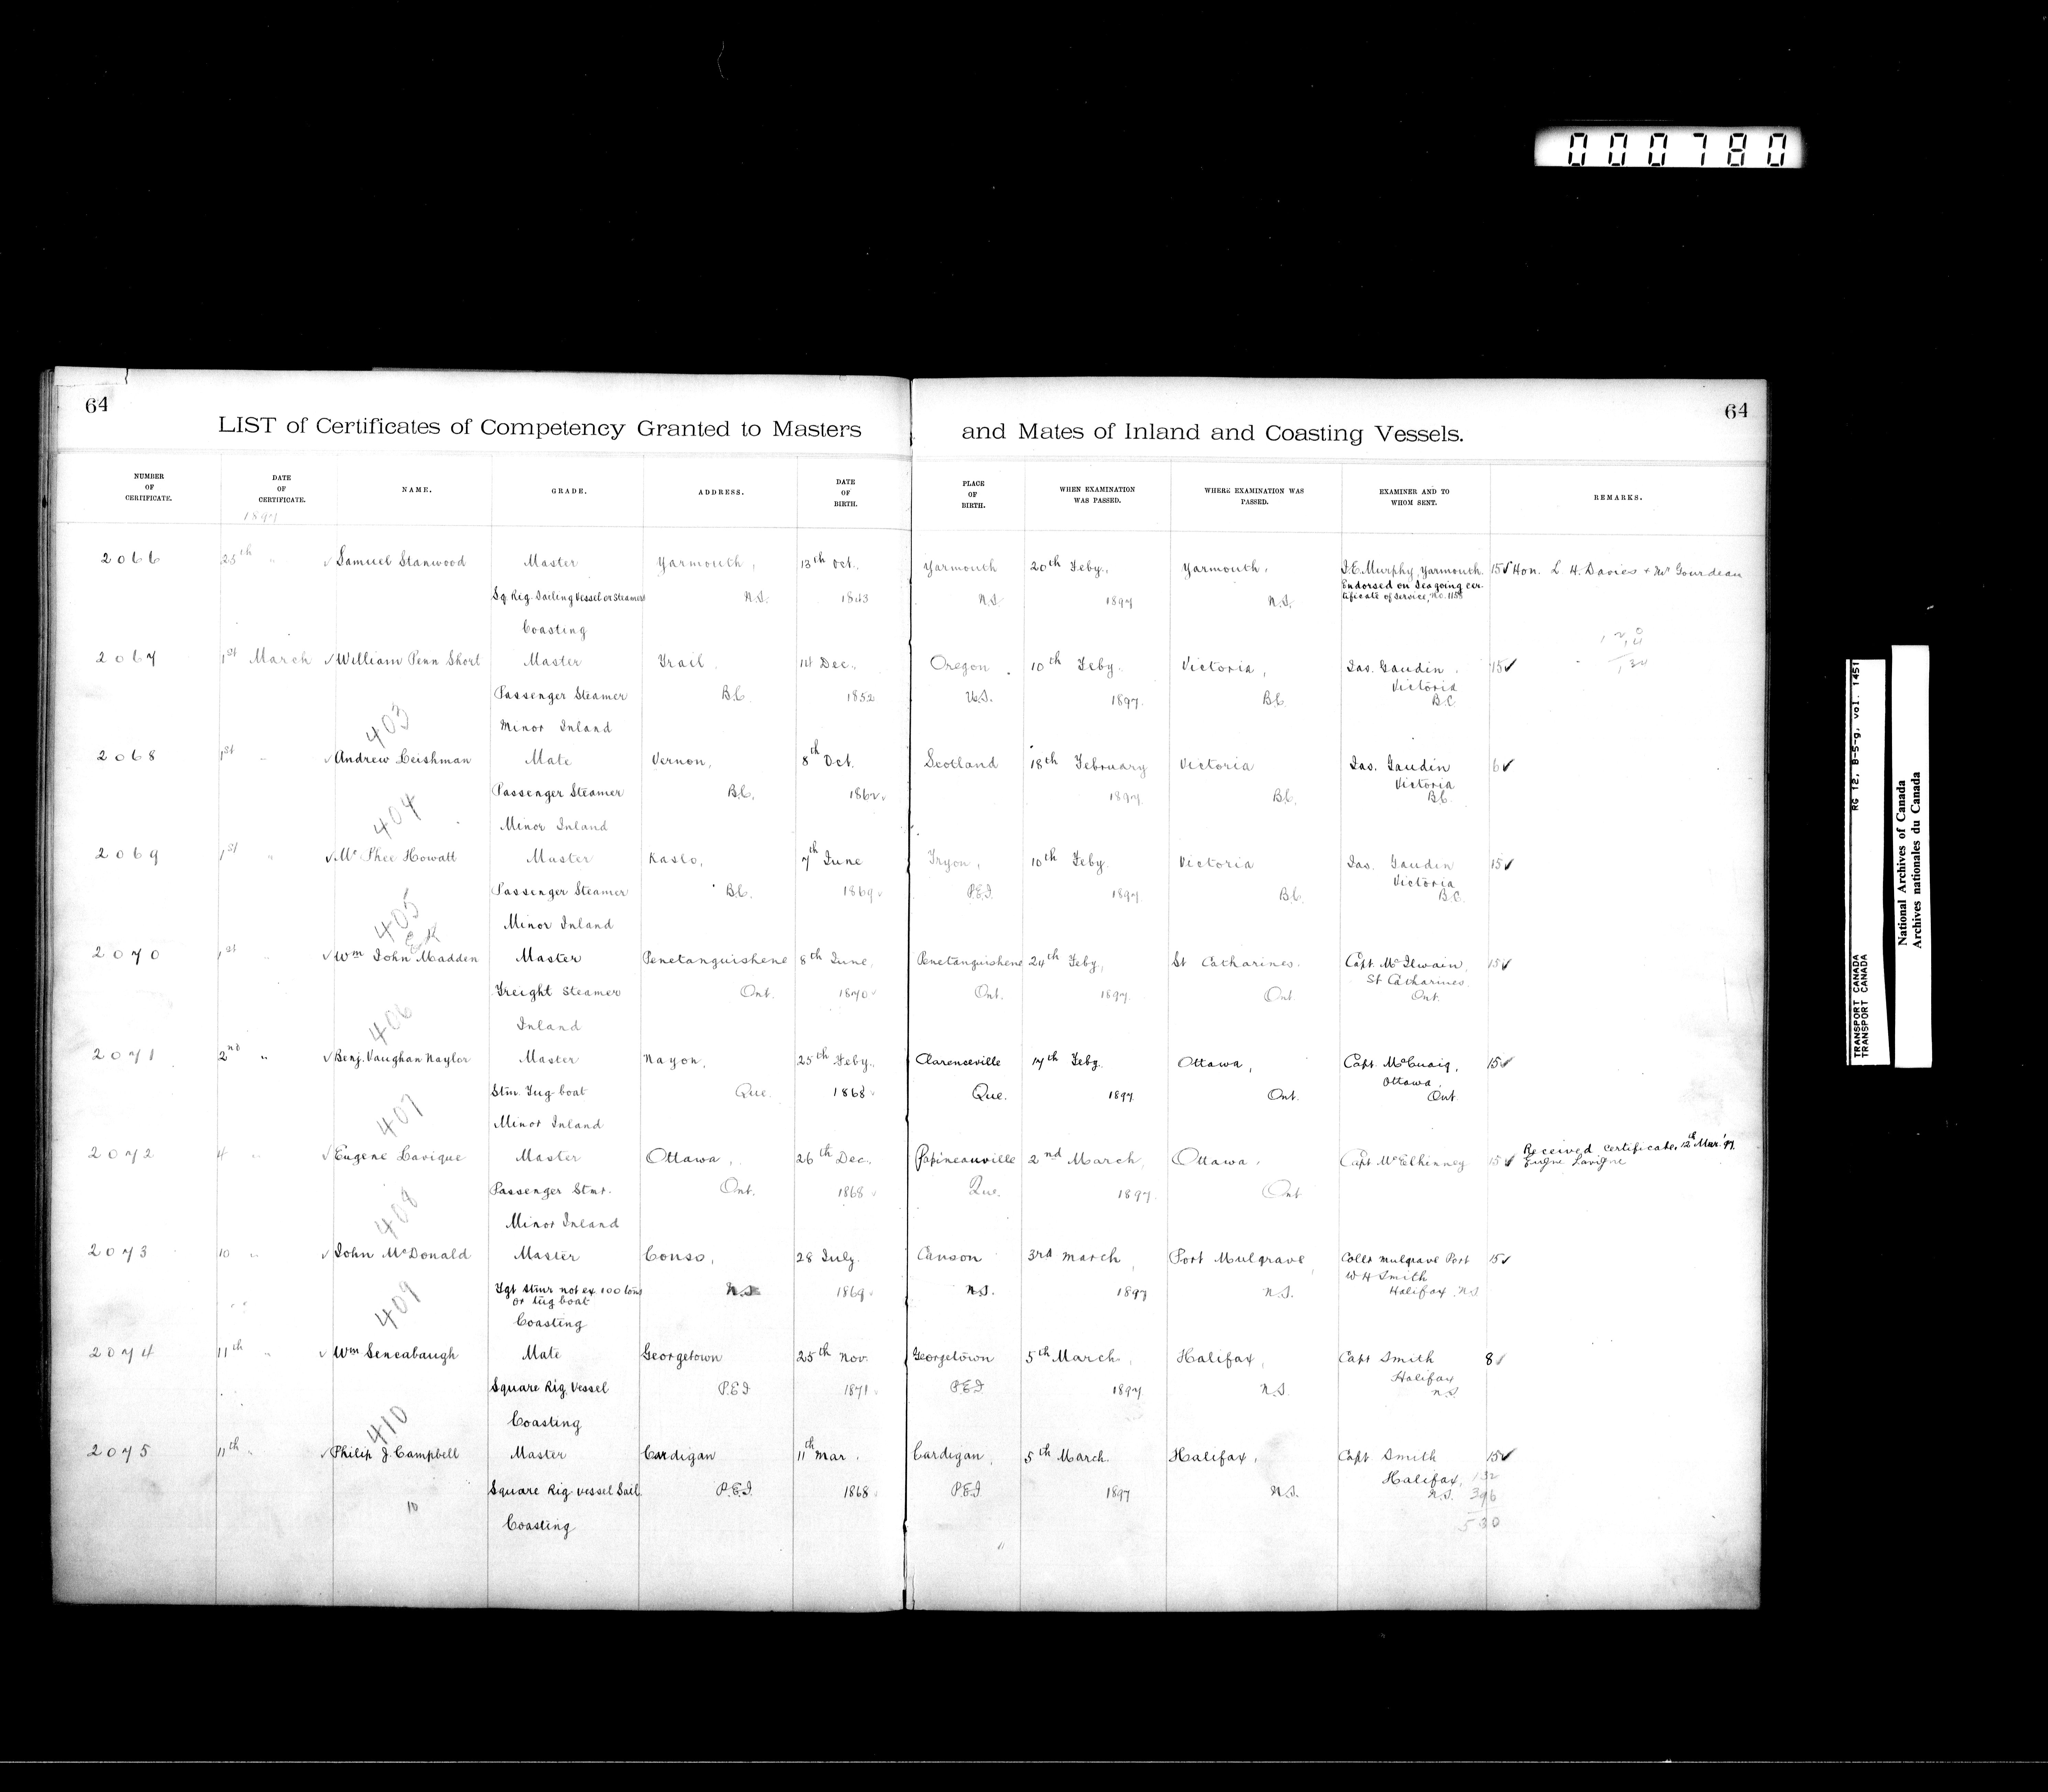 000780
64
64
LIST of Certificates of Competency Granted to Masters and Mates of Inland and Coasting Vessels.
NUMBER OF CERTIFICATE. DATE OF CERTIFICATE. NAME. GRADE. ADDRESS. DATE OF BIRTH. PLACE OF BIRTH. WHEN EXAMINATION WAS PASSED. WHERE EXAMINATION WAS PASSED. EXAMINER AND TO WHOM SENT. REMARKS.
1897
2066 25th " ✓ Samuel Stanwood Master Yarmouth, 13th Oct. Yarmouth 20th Feby., Yarmouth, J.E. Murphy, Yarmouth. 15 ✓ Hon. L. H. Davies + Mr Gourdeau
Sq Rig Sailing Vessel or Steamers N.S. 1843 N.S. 1897 N.S. Endorsed on Seagoing cer-
tificate of Service, No. 1158
Coasting
2067 1st March ✓ William Penn Short Master Trail. 14 Dec., Oregon. 10th Feby. Victoria, Jas. Gaudin. 15 ✓
Passenger Steamer B.C. 1852 U.S. 1897. B.C. Victoria
B.C.
403 Minor Inland
2068 1st " ✓ Andrew Leishman Mate Vernon, 8th Oct. Scotland 18th February Victoria Jas. Gaudin 6 ✓
Passenger Steamer B.C. 1862 1897 B.C. Victoria
B.C.
404 Minor Inland
2069 1st " ✓ Mc Phee Howatt Master Kaslo, 7th June Tryon, 10th Feby. Victoria Jas. Gaudin 15 ✓
Passenger Steamer B.C. 1869 P.E.I. 1897 B.C. Victoria
B.C.
405 Minor Inland
2070 1st " ✓ Wm John Madden Master Penetanguishene 8th June, Penetanguishene 24th Feby, St Catharines. Capt. McIlwain, 15 ✓
Freight Steamer Ont. 1870 Ont. 1897. Ont. St Catharines.
Ont.
406 Inland
2071 2nd " ✓ Benj. Vaughan Naylor Master Nayon, 25th Feby., Clarenceville 17th Feby. Ottawa, Capt. McCuaig, 15 ✓
Stm. Tug-boat Que. 1868 Que. 1897 Ont. Ottawa,
Ont.
407 Minor Inland
2072 4 " ✓ Eugene Lavigue Master Ottawa, 26th Dec., Papineauville 2nd March, Ottawa, Capt McElhinney 15 ✓ Received certificate, 12th Mar. '97.
Eugne Lavigne
Passenger Stmr. Ont. 1868 Que. 1897. Ont
408 Minor Inland
2073 10 " ✓ John McDonald Master Conso, 28 July. Canson 3rd March, Port Mulgrave, Coller Mulgrave Port 15 ✓
W H Smith
Fgt stmr not ex 100 tons N.S. 1869 N.S. 1897 N.S. Halifax N.S.
or tug boat
409 Coasting
2074 11th " ✓ Wm Sencabaugh Mate Georgetown 25th Nov. Georgetown 5th March, Halifax, Capt Smith 8 ✓
Square Rig. Vessel P.E.I 1871 P.E.I 1897 N.S. Halifax
N.S
410 Coasting
2075 11th " ✓ Philip J. Campbell Master Cardigan 11th Mar, Cardigan, 5th March. Halifax, Capt Smith 15 ✓
Square Rig. Vessel Sail P.E.I. 1868 P.E.I 1897 N.S. Halifax, 132
N.S. 396
10 Coasting 530
TRANSPORT CANADA RG 12, B-5-g, vol. 1451
TRANSPORT CANADA
National Archives of Canada
Archives nationales du Canada